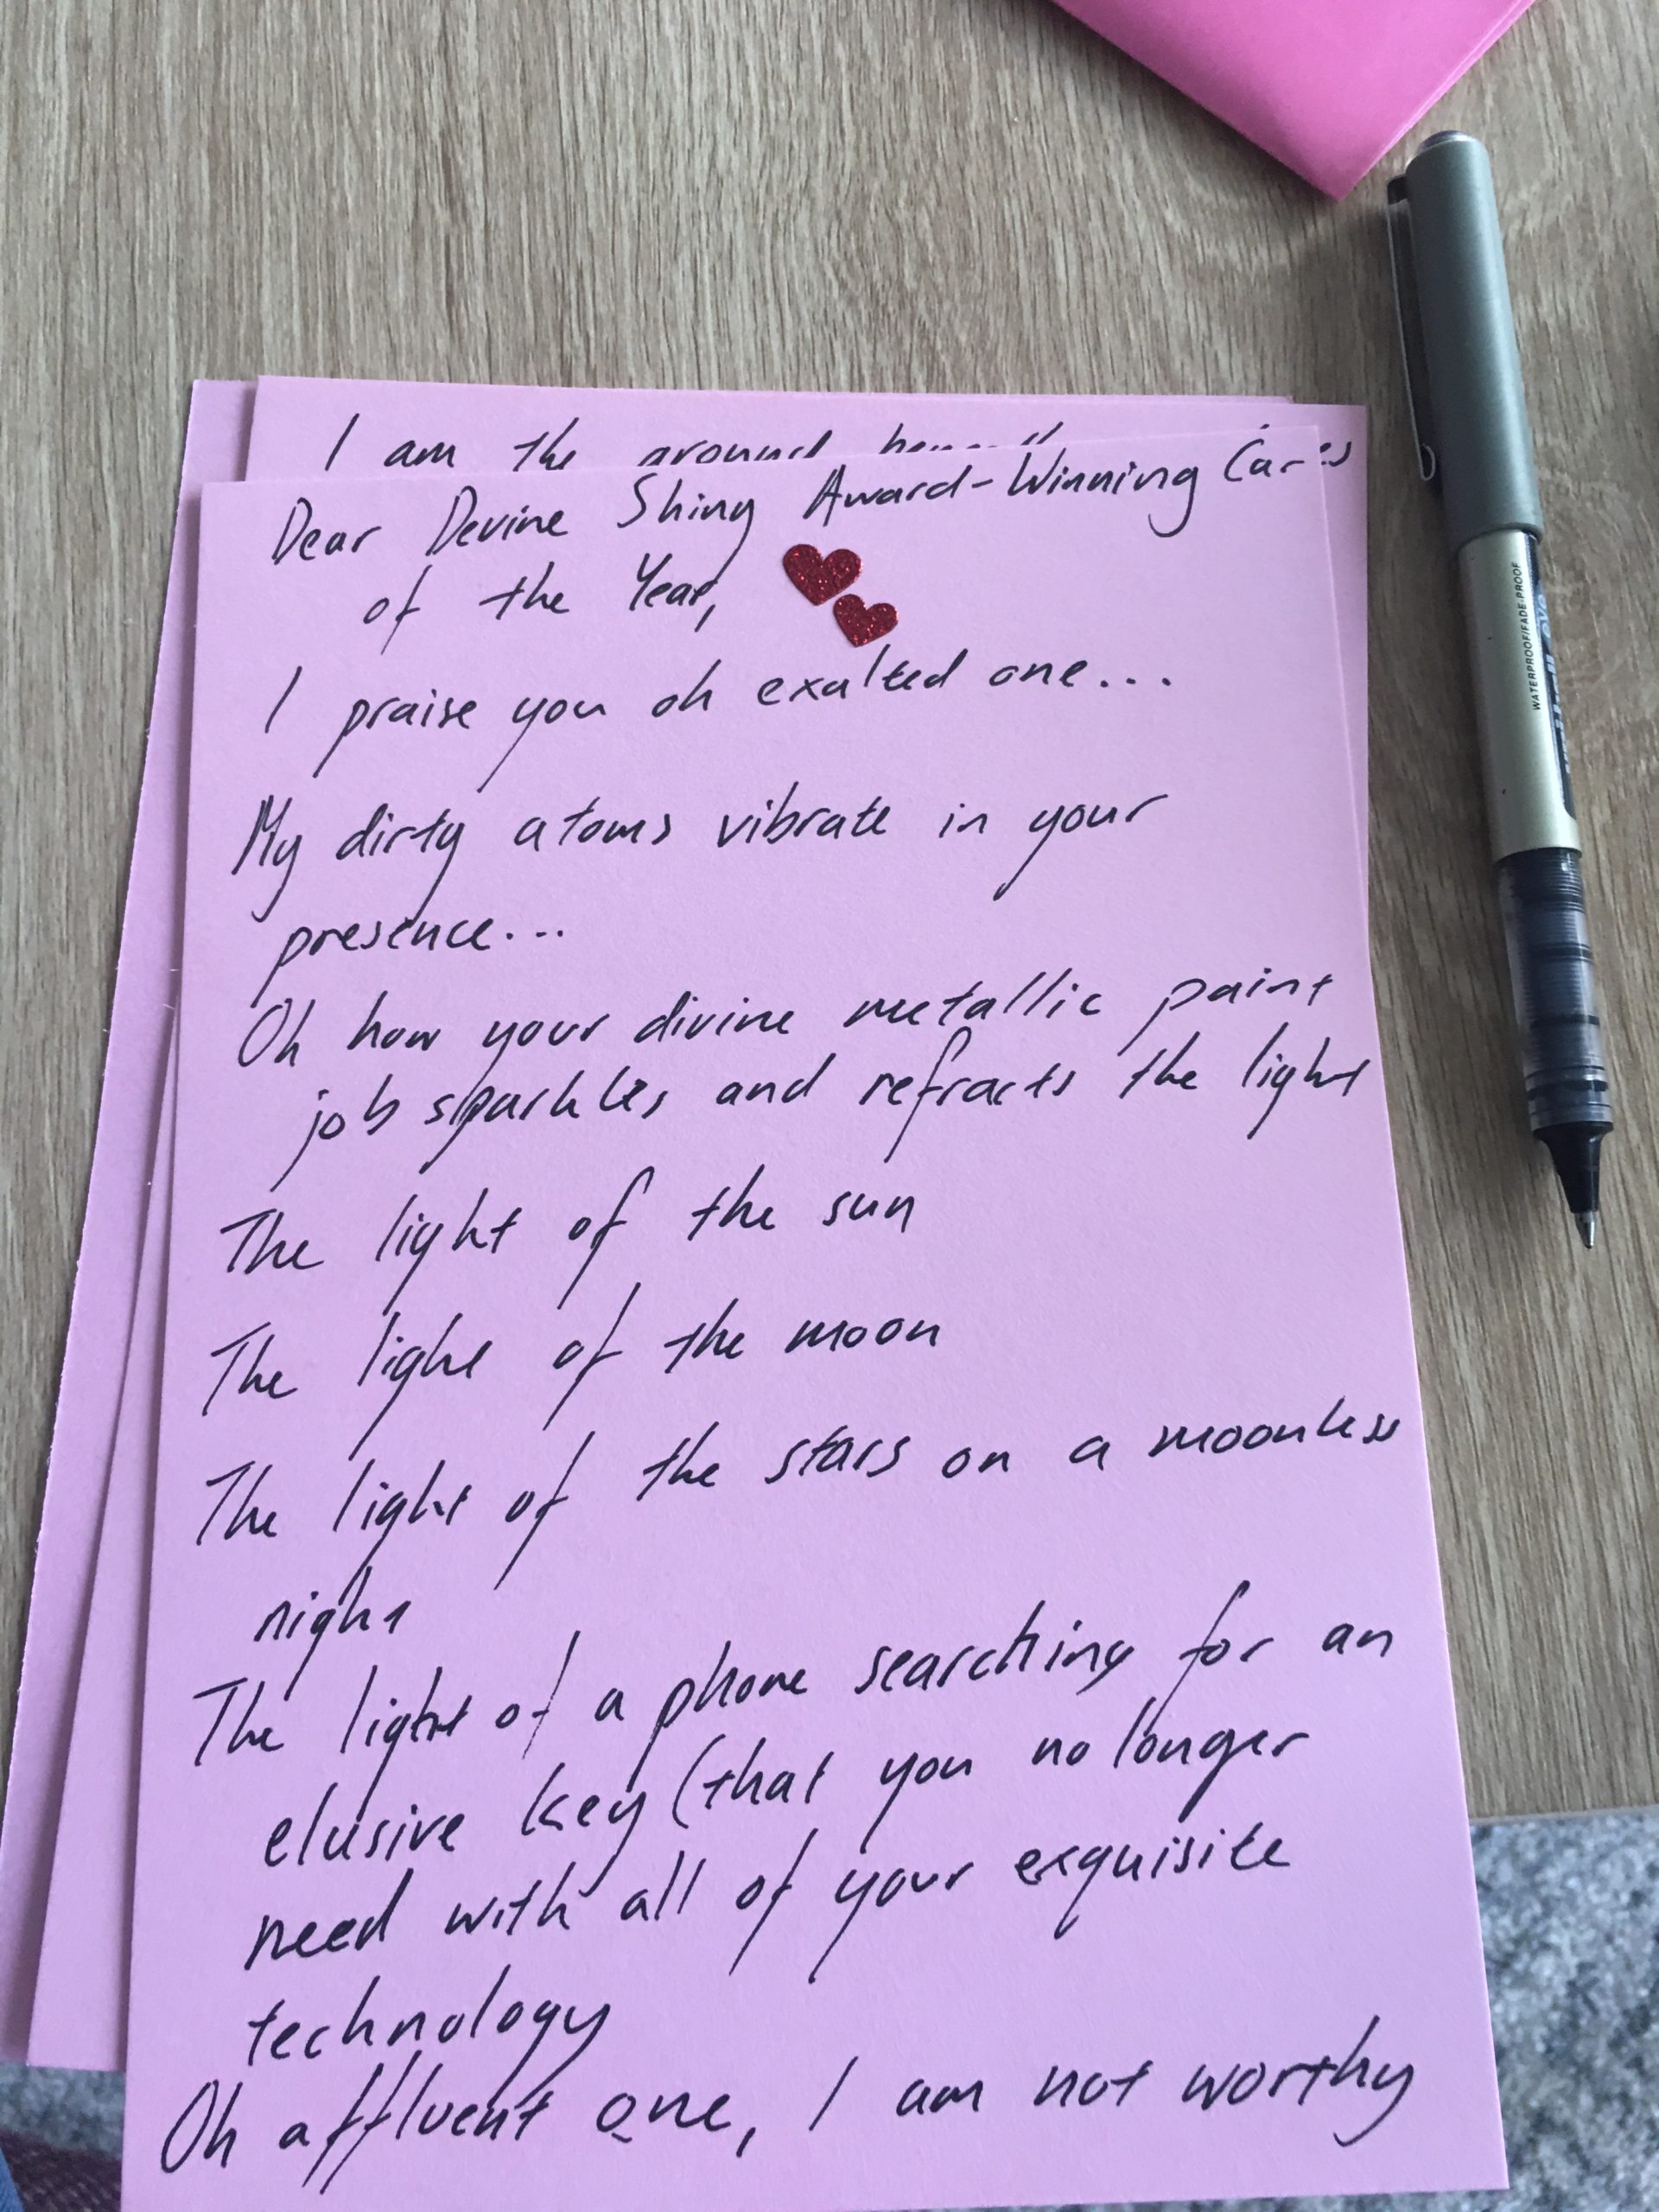 I am the ground
Dear Devine Shiny Award-Winning Cars
of the Year,
I praise you oh exalted one...
My dirty atoms vibrate in your
presence...
Oh how your divine metallic paint
job sparkles and refracts the light
The light of the sun
The light of the moon
The light of the stars on a moonless
night
The light of a phone searching for an
elusive key (that you no longer
need with all of your exquisite
technology
Oh affluent one, I am not worthy
WATERPROOF/FADE-PROOF